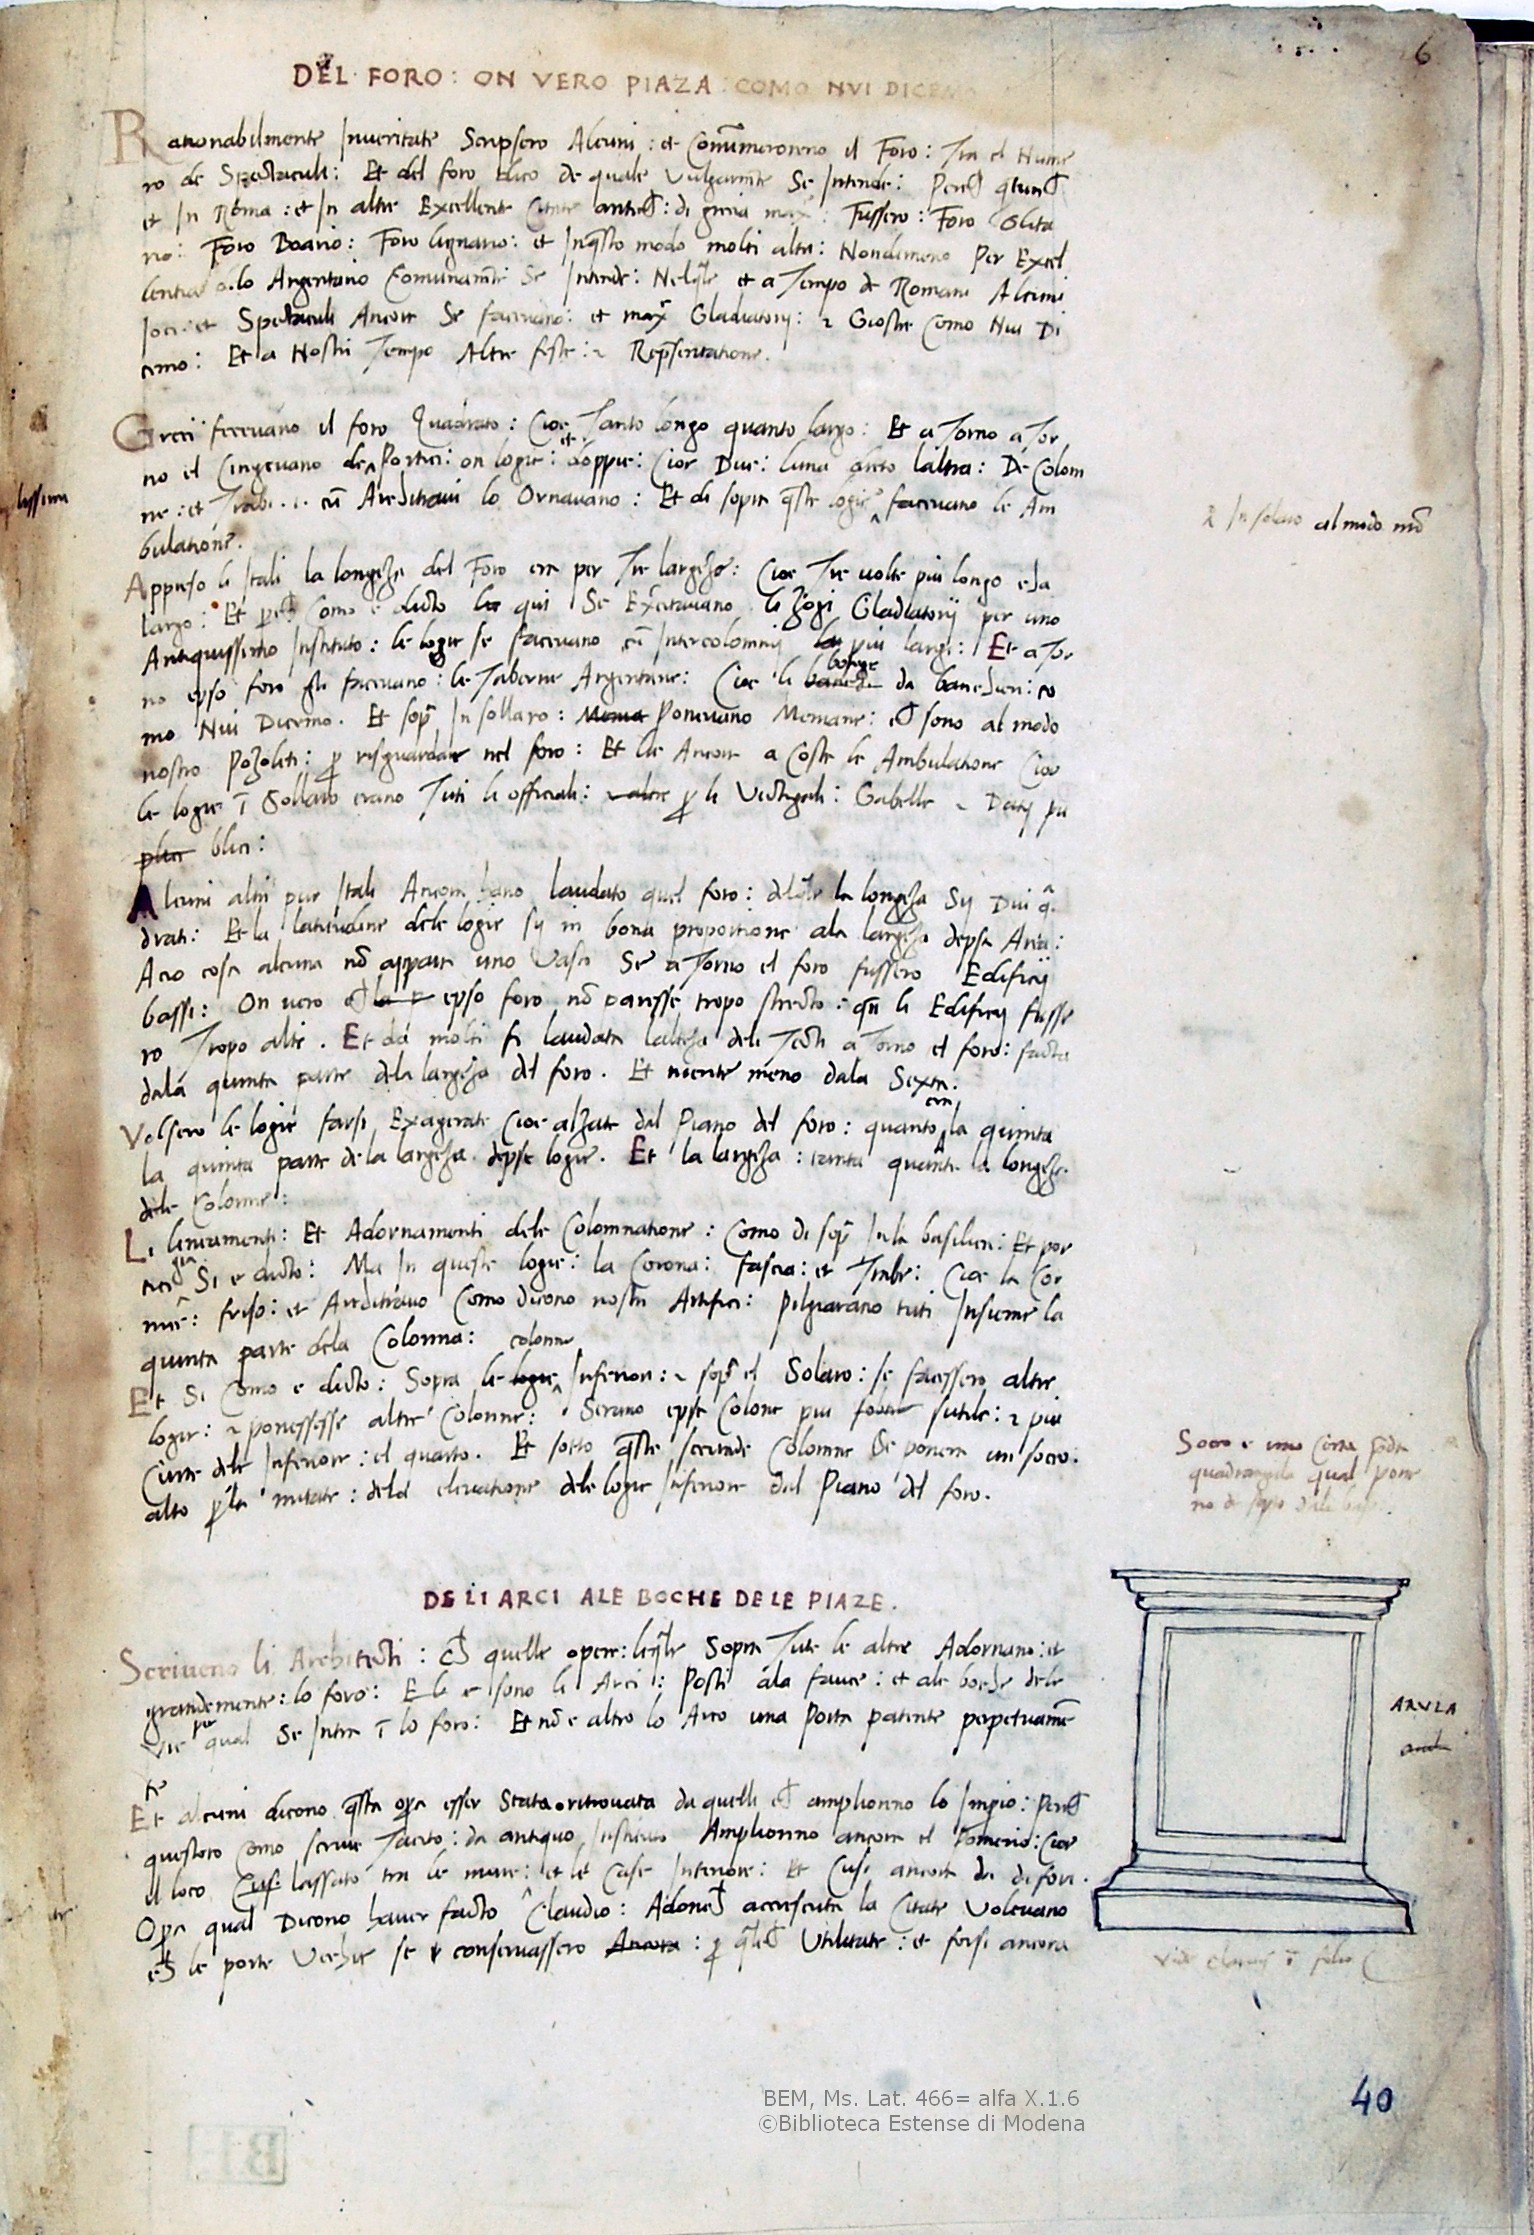 6
DEL FORO: ON VERO PIAZA: COMO NVI DICEMO
Rationabilmente Inueritate Scripsero Alcuni: et Conumerorono el Foro: Tra el Nume
ro de Spectaculi: Et del foro dico de quale Vulgarmte Se Intende: Perch
et In Roma: et In altre Excellente Citate antich: di gretia max: Fussero: Foro Olita
rio: Foro Boario: Foro lignario: et Inqsto modo molti altri: Nondimeno Per Excel
lentia a lo Argentario Comunamte Se Intende: Nelqle et a Tempo de Romani Alcuni
Ioci: et Spectaculi Ancora Se faceuano: et max Gladiatorij: 2 Giostre Como Nui Di
cemo: Et a Nostri Tempo Altre feste: 2 Representatione.
Greci feceuano il foro Quadrato: Cioe Tanto longo quanto largo: Et a Torno a Tor
no el Cingeuano de Portici: on logie: et doppie: Cioe Due: luna dreto laltra: De Colom
ne: et Trabi cu Architraui lo Ornauano: Et di sopra qste logie faceuano le Am
bulatione.
2 In solaro al modo nro
Appreso li Itali la longeza del Foro era per Tre largeze: Cioe Tre uolte piu longo cha
largo: Et perch Como e dicto qui Se Exercitauano li Zogi Gladiatorij per uno
Antiquissimo Instituto: le logie se faceuano cu Intercolomnij piu largi: Et a Tor
no epso foro gli faceuano: le Taberne Argentarie: Cioe le botege banchi da bancheri: co
mo Nui Dicemo. Et sopra In sollaro: Poneuano Meniane: ch sono al modo
nostro Pozoleti: p risguardare nel foro: Et lie Ancora a Coste le Ambulatione Cioe
le logie i Sollaro erano Tuti li officiali: p li Vectigali: Gabelle 2 Datij pu
blici:
Alcuni altri pur Itali Ancora hano laudato quel foro: delqle la longeza Sij Dui q
drati: Et la latitudine dele logie sij in bona proportione ala largeza depsa Area:
Acio cosa alcuna no appaia uno Vaso Se a Torno el foro fussero Edificij
bassi: On uero ch epso foro no paresse tropo strecto: qn li Edificij fusse
ro Tropo alti. Et da molti fi laudata lalteza deli Tecti a Torno el foro: facta
dala quinta parte dela largeza del foro. Et niente meno dala Sexta.
Volsero le logie farsi Exagerate Cioe alzate dal Piano del foro: quanto era la quinta
la quinta parte de la largeza depse logie. Et la largeza: tanta quanta la longeza
dele Colonne:
Li leniamenti: Et Adornamenti dele Colomnatione: Como di sopra In la basilica: Et por
tici gia Si e dicto: Ma In queste logie: la Corona: fascia: et Trabe: Cioe la Cor
nise: friso: et Architrauo Como dicono nostri Artifici: Pilgiarano tuti Insieme la
quinta parte dela Colonna:
Et Si Como e dicto: Sopra le logie colonne Inferiori: 2 sopra el Solaro: se facessero altre
logie: 2 ponessesse altre Colonne: Serano epse Colone piu sutile: 2 piu
Curte dele Inferiore: el quarto. Et sotto qste seconde Colomne Se ponera un socco:
alto p la mitate: dela eleuatione dele logie Inferiore dal Piano del foro.
Socco e uno Certa
quadrangula qual pone
no de sopto dele base.
DELI ARCI ALE BOCHE DELE PIAZE.
Scriueno li Architecti: ch quelle opere: leqle Sopra Tute le altre Adornano: et
grandemente: lo foro: E le e sono li Arci: Posti ala fauce: et ale boche dele
Vie per qual Se Intra i lo foro: Et no e altro lo Arco una Porta patente perpetuame
te
ARULA
Et alcuni dicono qsta opa esser Stata ritrouata da quelli ch ampliorno lo Imperio: Perch
questoro como scriue Tacito: da antiquo Instituto Ampliorno ancora el Pomerio: Cioe
il loco lassato tra le mure: et le Case Interiore: Et Cusi ancora da difori.
Opa qual Dicono hauer facto Claudio: Adonch accresciuta la Citate Voleuano
ch le porte Vechie se conseruassero Ancora: p qlch Utilitate: et forsi ancora
40
BEM, Ms. Lat. 466= alfa X.1.6
©Biblioteca Estense di Modena